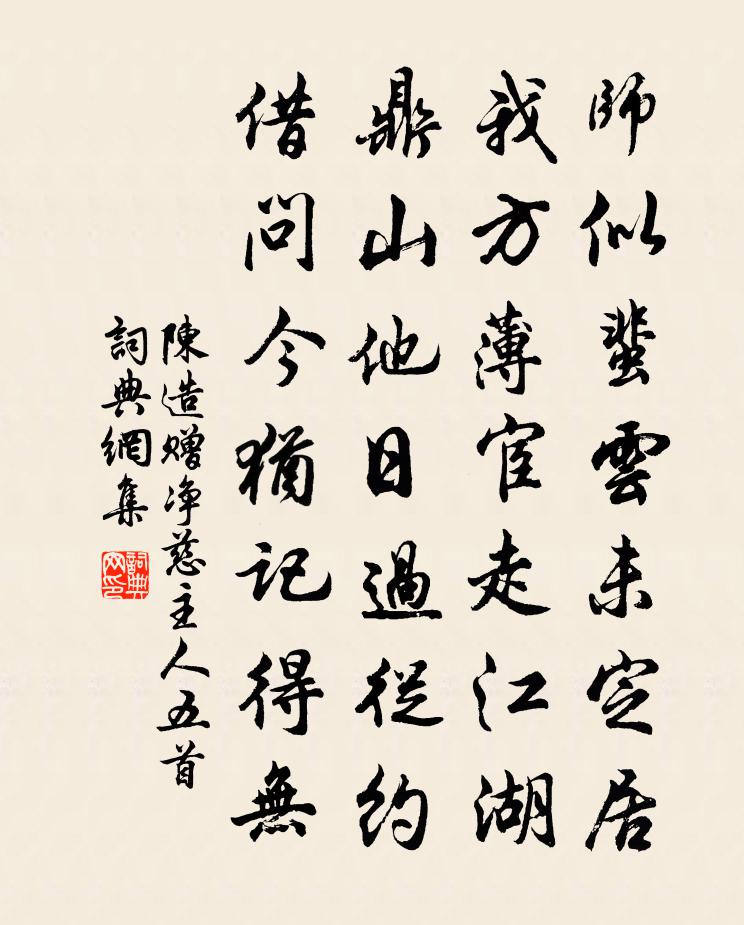 師似蜚雲未定居
我方薄宦走江湖
鼎山他日過從約
借問今猶記得無
陳造贈净慈主人五首
詞典網集
詞典網印